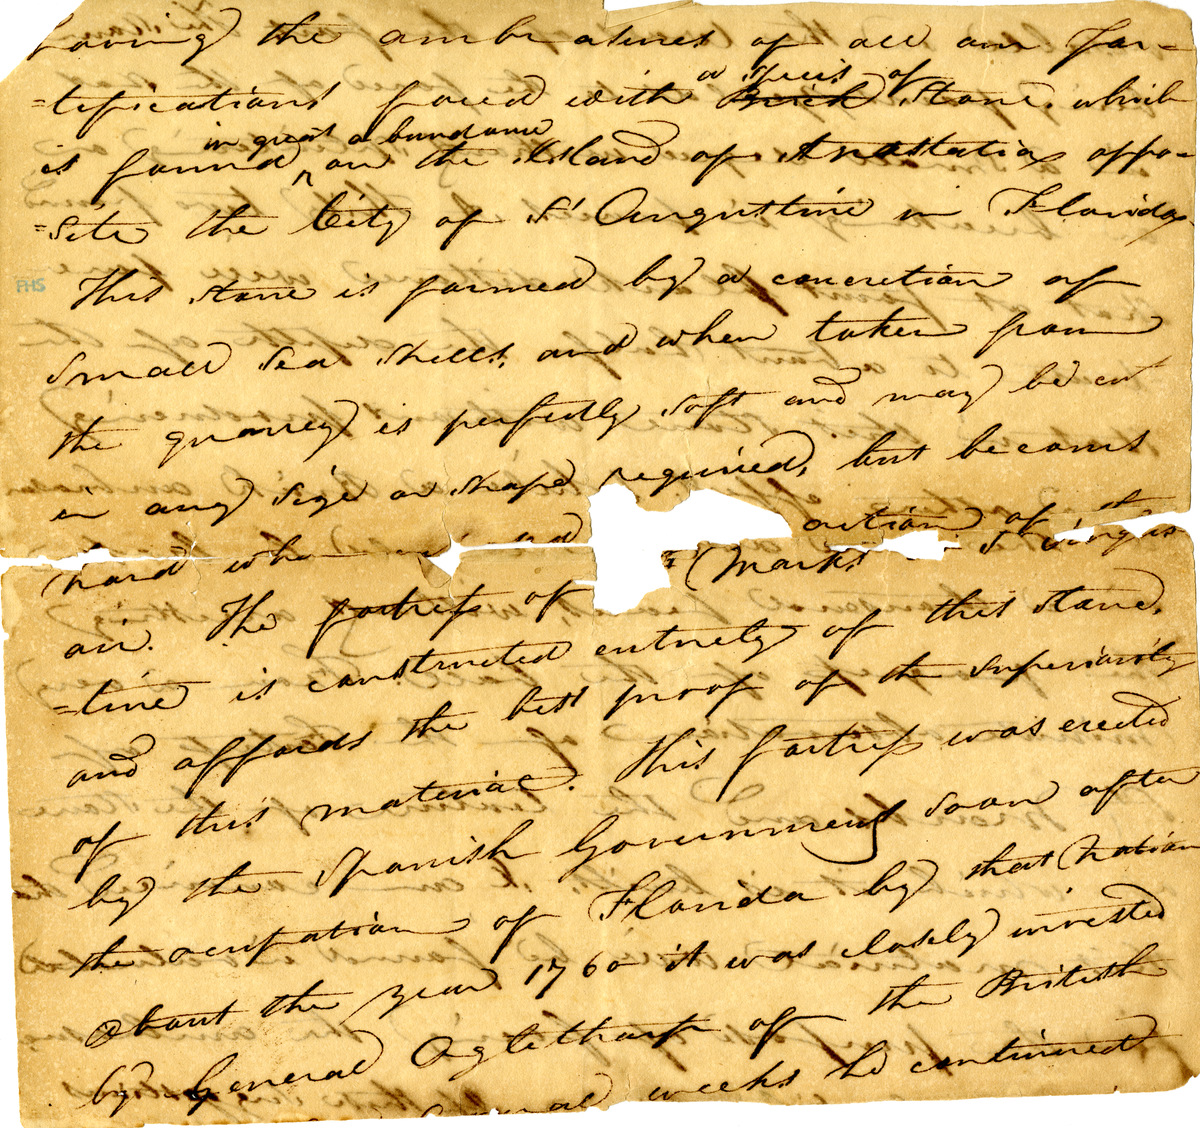 having the ambrasures of all our for-
=tifications faced with a speeis of Brick Stone, which
is found in great abundance on the Island of Anastatia oppo-
=site the City of St Augustine in Florida
This stone is formed by a concretion of
FHS
small sea shells, and when taken from
the quarrey is perfectly soft and may be cut
in any size or shape required, but becoms
hard action of the
air. The fortress of Marks St Augus
=tine is constructed entirely of this stone,
and affords the best proof of the superiority
of this material. This fortress was erected
by the Spanish Government soon after
the occupation of Florida by that Nation
About the year 1760 it was closely invested
by General Oglethorp of the British
weeks he continued